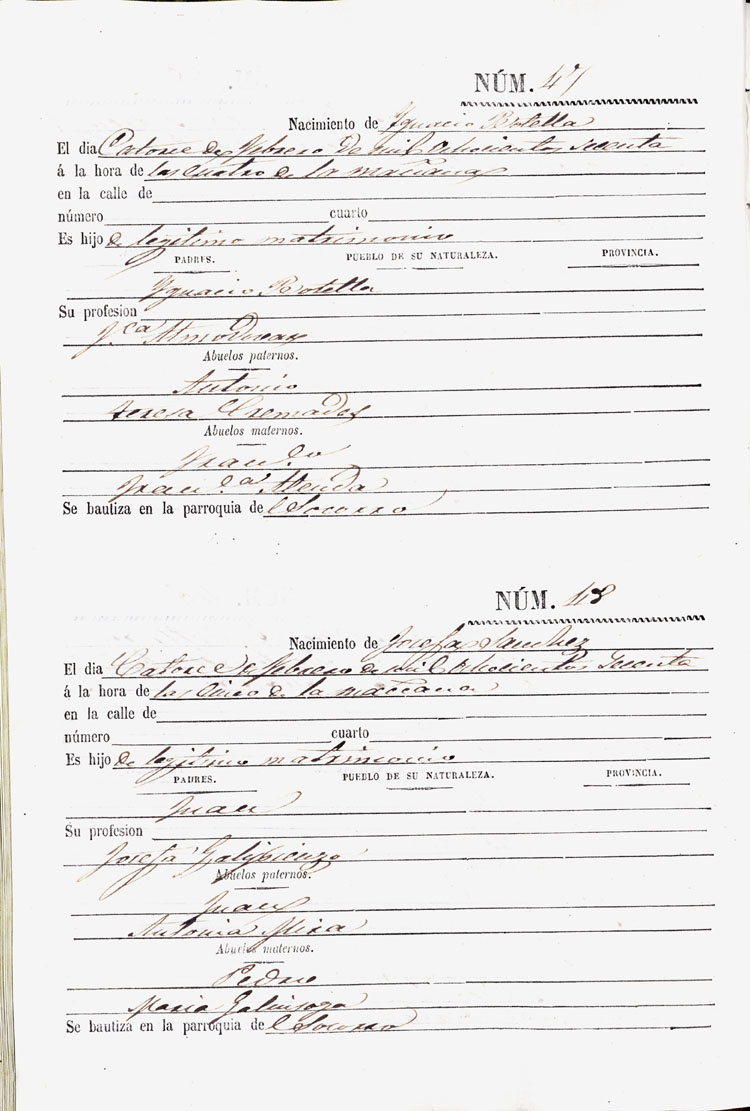 NÚM. 47
Nacimiento de Ygnacio Botella
El dia Catorce de febrero de mil ochocientos sesenta
á la hora de las cuatro de la mañana
en la calle de
número cuarto
Es hijo de legitimo matrimonio
PADRES. PUEBLO DE SU NATURALEZA. PROVINCIA.
Ygnacio Botella
Su profesion
Abuelos paternos.
Antonio
Teresa Cremades
Abuelos maternos.
Fran.co
Fran.ca
Se bautiza en la parroquia del Socorro
NÚM. 48
Nacimiento de Josefa Sanchez
El dia Catorce de febrero de mil ochocientos sesenta
á la hora de las cinco de la mañana
en la calle de
número cuarto
Es hijo de legitimo matrimonio
PADRES. PUEBLO DE SU NATURALEZA. PROVINCIA.
Juan
Su profesion
Josefa
Abuelos paternos.
Juan
Antonia Mira
Abuelos maternos.
Pedro
Maria Galinsoga
Se bautiza en la parroquia del Socorro